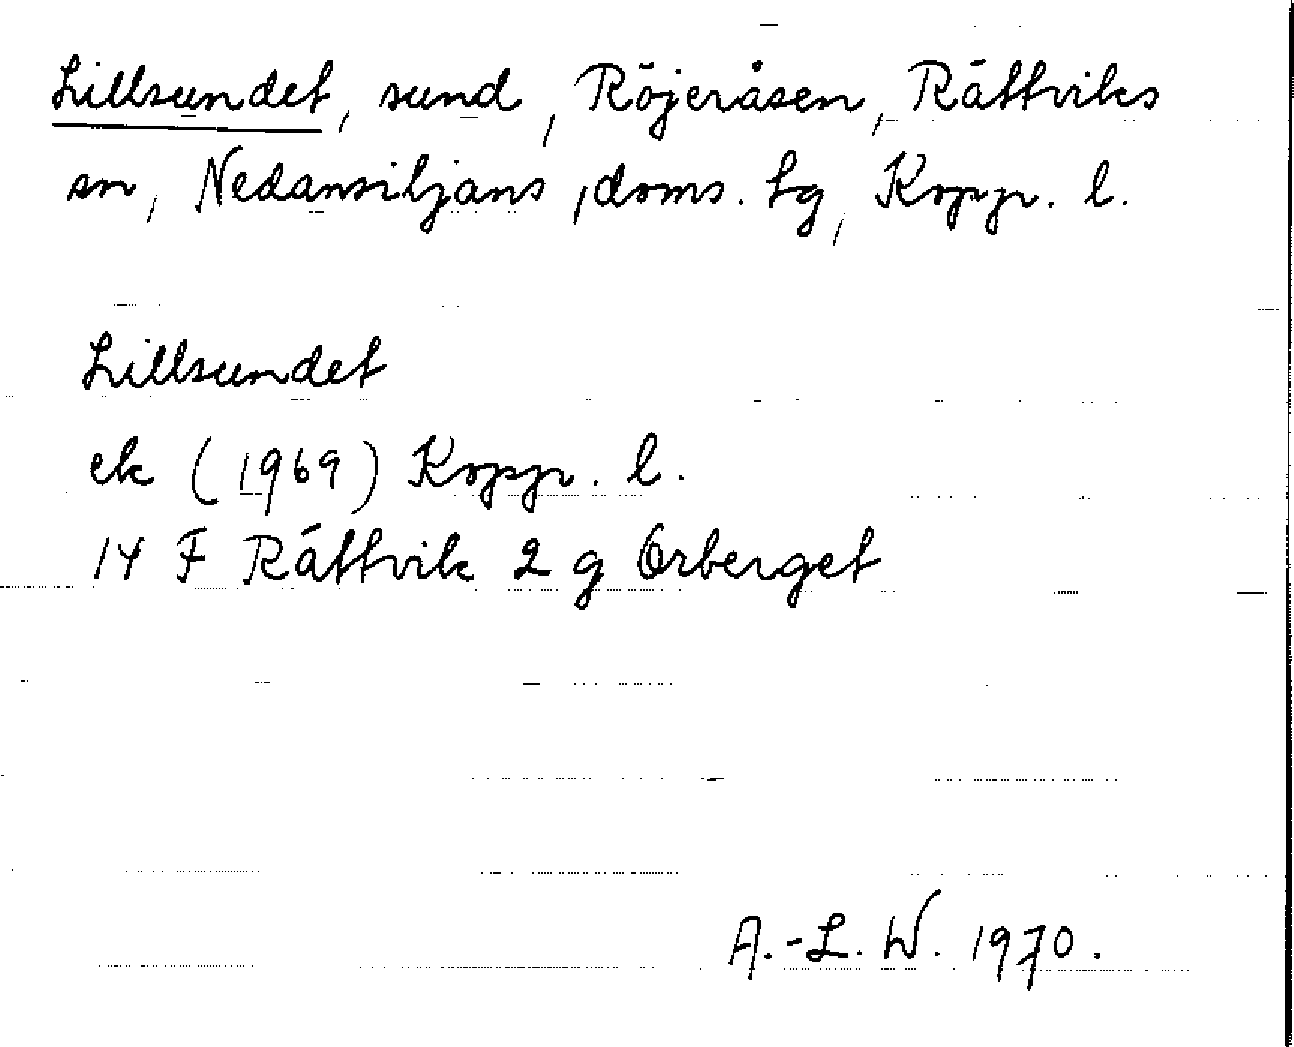 Lillsundet, sund, Röjeråsen, Rättviks
sn, Nedansiljans, doms. tg, Kopp. l.
Lillsundet
ek (1969) Kopp. l.
14 F Rättvik 2 g Orberget
A.-L. W. 1970.